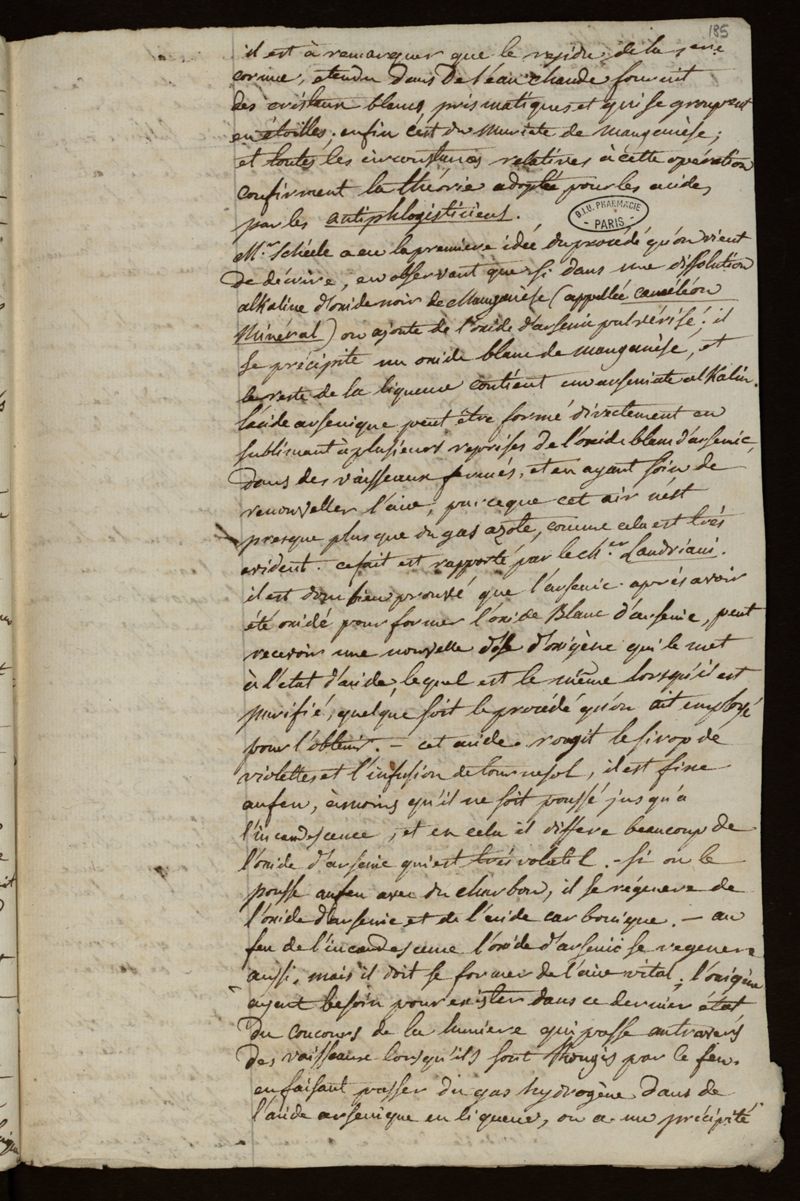 185
il est à remarquer que le residu de la
cornue, etendu dans de l'eau chaude fournit
des cristaux blancs, prismatiques et qui se groupent
en étoilles. enfin c'est du Muriate de Manganèse;
et toutes les circonstances relatives à cette opération
confirment la théorie adoptée pour les acides,
par les antiphlogisticiens.
B.I.U. PHARMACIE
PARIS
Mr. Schéele a eu la premiere idée du procédé qu'on vient
de décrire, en observant que si dans une dissolution
alkaline d'oxide noir de Manganèse (appellée caméléon
Minéral) on ajoute de l'oxide d'arsenic pulvérisé; il
se précipite un oxide blanc de manganèse, et
le reste de la liqueur contient un arseniate alkalin.
l'acide arsenique peut être formé directement en
sublimant à plusieurs reprises de l'oxide blanc d'arsenic,
dans des vaisseaux fermés, et en ayant soin de
renouveller l'air, parceque cet air n'est
presque plus que du gas azote, comme cela est très
evident. ce fait est rapporté par le cher. Landriani.
il est donc bien prouvé que l'arsenic après avoir
été oxidé pour former l'oxide Blanc d'arsenic, peut
recevoir une nouvelle dose d'oxigène qui le met
à l'état d'acide, lequel est le même lorsqu'il est
purifié, quelque soit le procédé qu'on ait employé
pour l'obtenir. — cet acide rougit le sirop de
violettes et l'infusion de tournesol, il est fixe
au feu, àmoins qu'il ne soit poussé jusqu'a
l'incandescence, et en cela il differe beaucoup de
l'oxide d'arsenic qui est très volatil. - si on le
pousse au feu avec du charbon, il se régenere de
l'oxide d'arsenic et de l'acide carbonique. — au
feu de l'incandescence l'oxide d'arsenic se regenere
aussi, mais il doit se former de l'air vital; l'oxigène
ayant besoin pour exister dans ce dernier état
du concours de la lumiere qui passe au travers
des vaisseaux lorsqu'ils sont Rougis par le feu.
en faisant passer du gas hydrogène dans de
l'acide arsenique en liqueur, on a un précipité